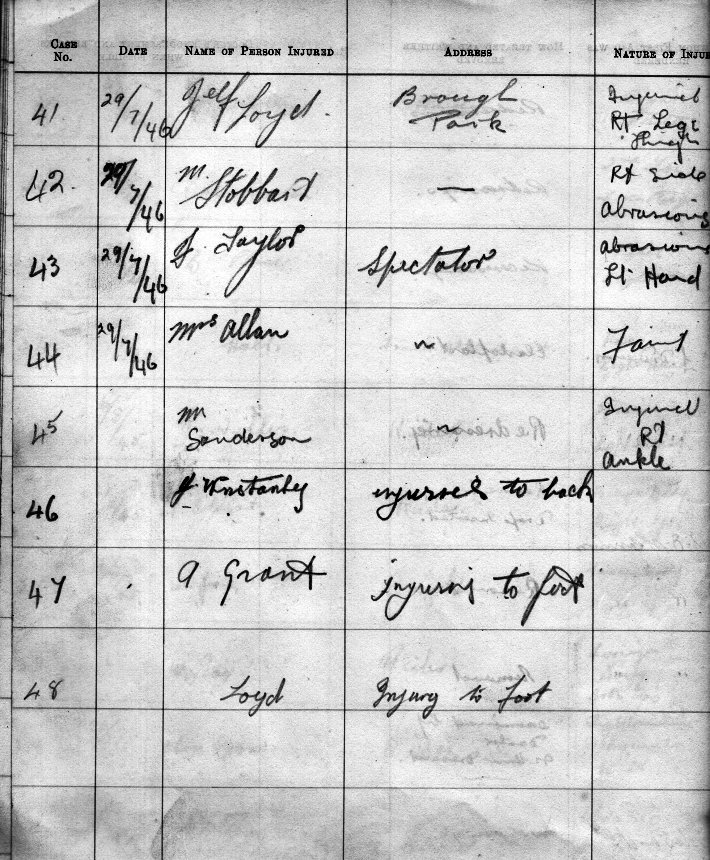 CASE No. DATE NAME OF PERSON INJURED ADDRESS NATURE OF INJU
41 29/7/46 Jeff Loyd. Brough Park Injured Rt Leg & Thigh
42. 29/7/46 Mr Stobbart — Rt Side abrasions
43 29/7/46 J. Taylor Spectator abrasions Lt Hand
44 29/7/46 Mrs Allan ~ Faint
45 Mr Sanderson ~ Injured Rt ankle
46 J. Winstanley injuries to back
47 A Grant injuries to foot
48 Loyd Injury to Foot